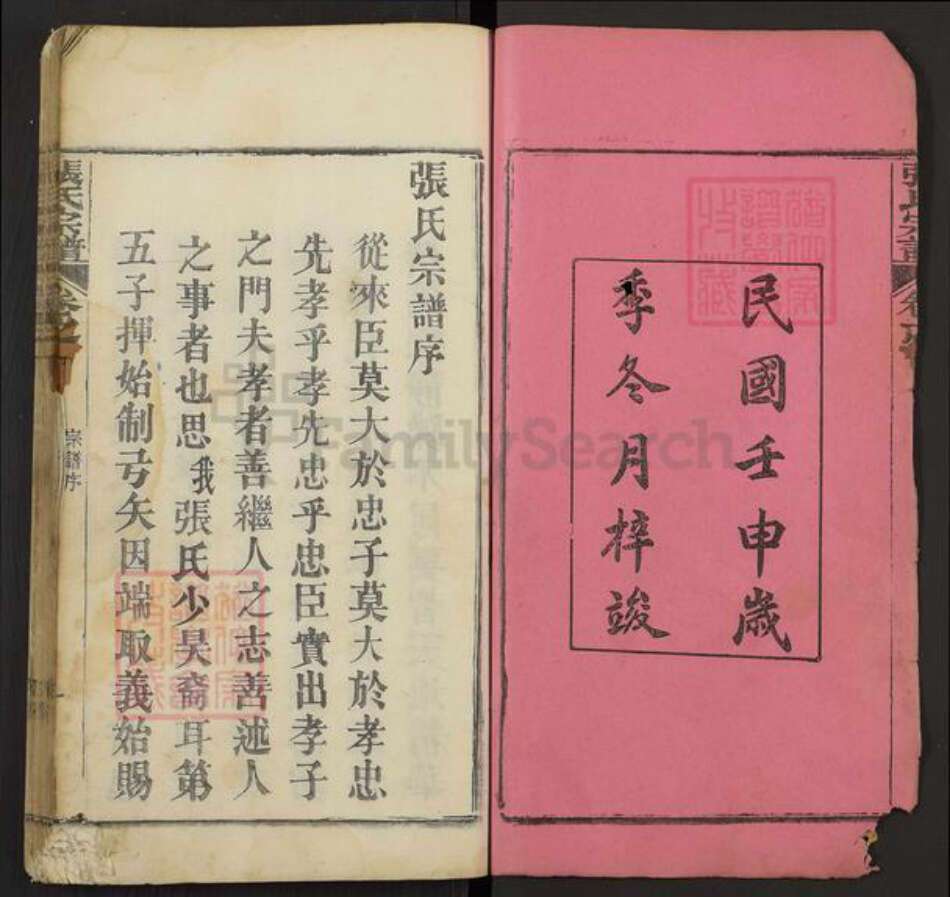 民國壬申歲
季冬月梓竣
張氏宗譜序
從來臣莫大於忠子莫大於孝忠
先孝乎孝先忠乎忠臣實出孝子
之門夫孝者善繼人之志善述人
之事者也思我張氏少昊裔耳第
五子揮始制弓矢因端取義始賜
張氏宗譜
宗譜序
FamilySearch